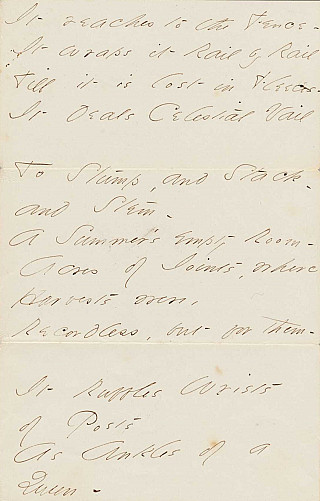 It reaches to the Fence -
It wraps it Rail by Rail
Till it is lost in Fleeces -
It Deals Celestial Vail
To Stump, and Stack -
and Stem -
A Summer's empty Room -
Acres of Joints, where
Harvests were,
Recordless, but for them -
It Ruffles Wrists
of Posts
As Ankles of a
Queen -